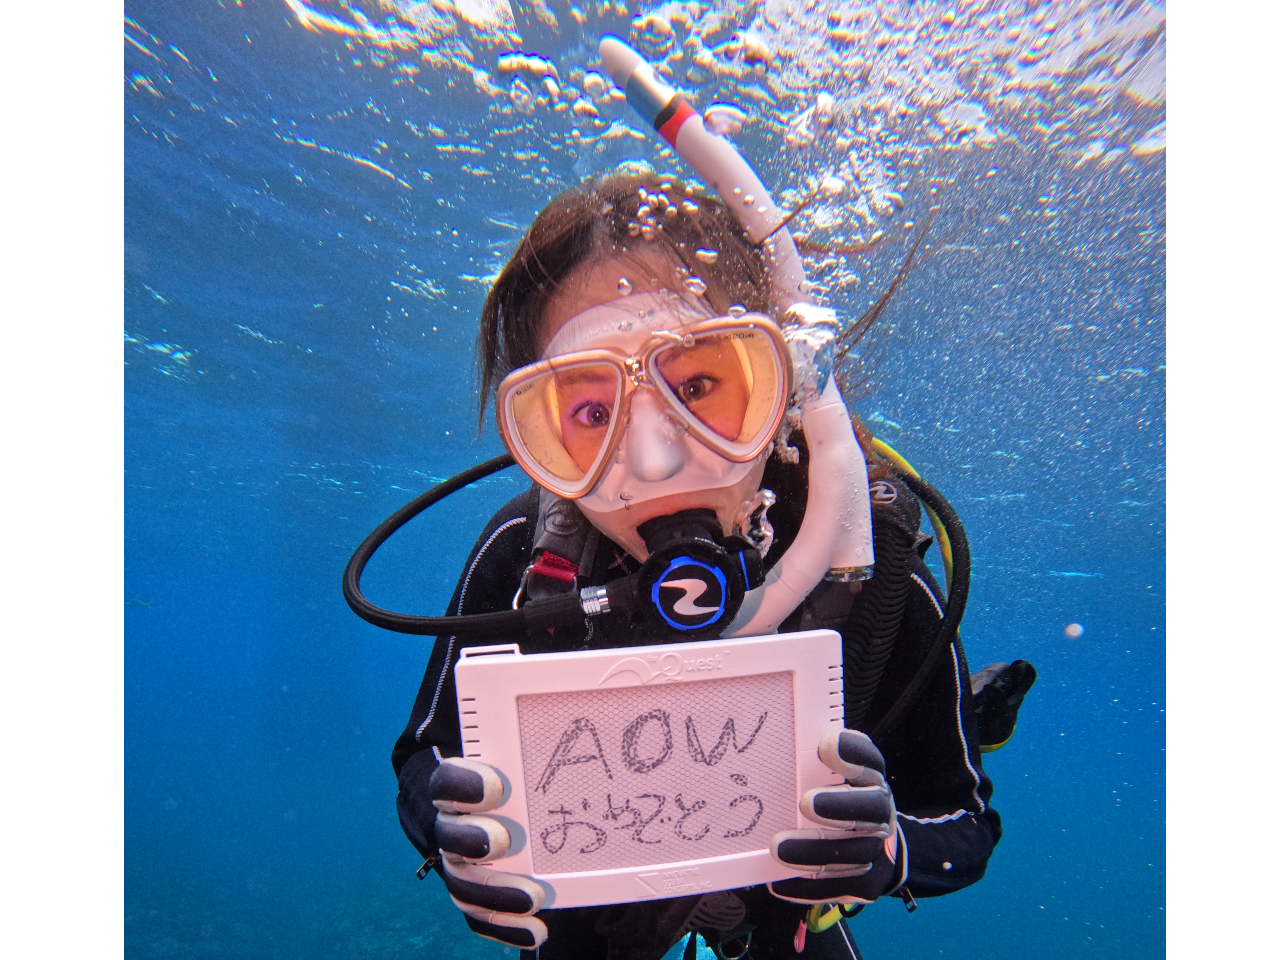 Quest
AOW
おめでとう